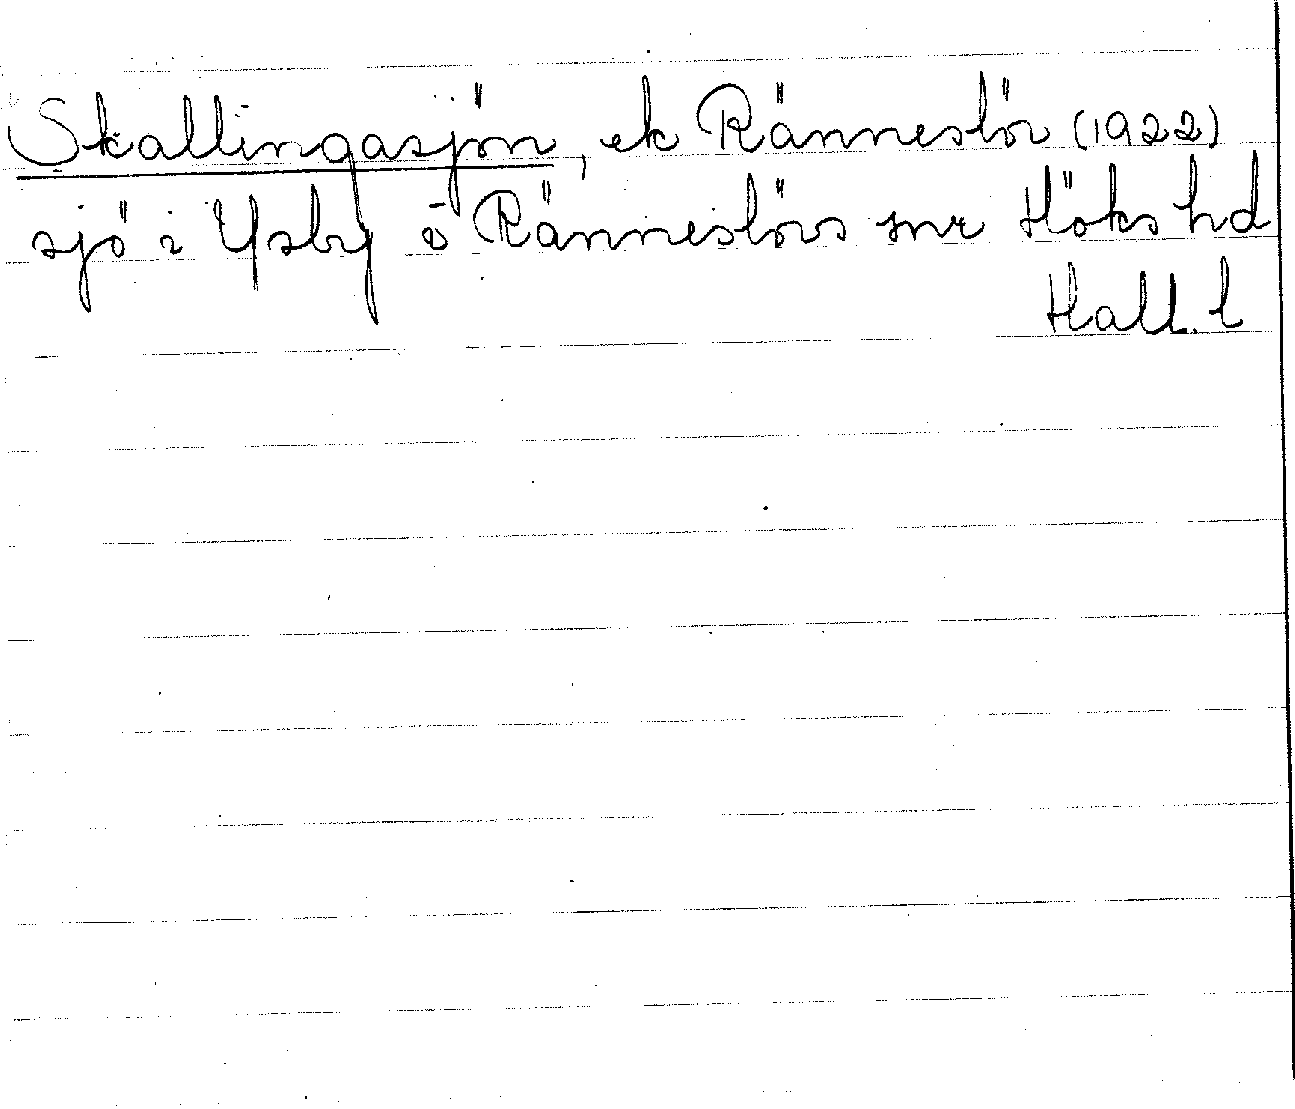 Skallingasjön, ek Ränneslöv (1922)
sjö i Ysby o Ränneslövs snr Höks hd
Hall. l